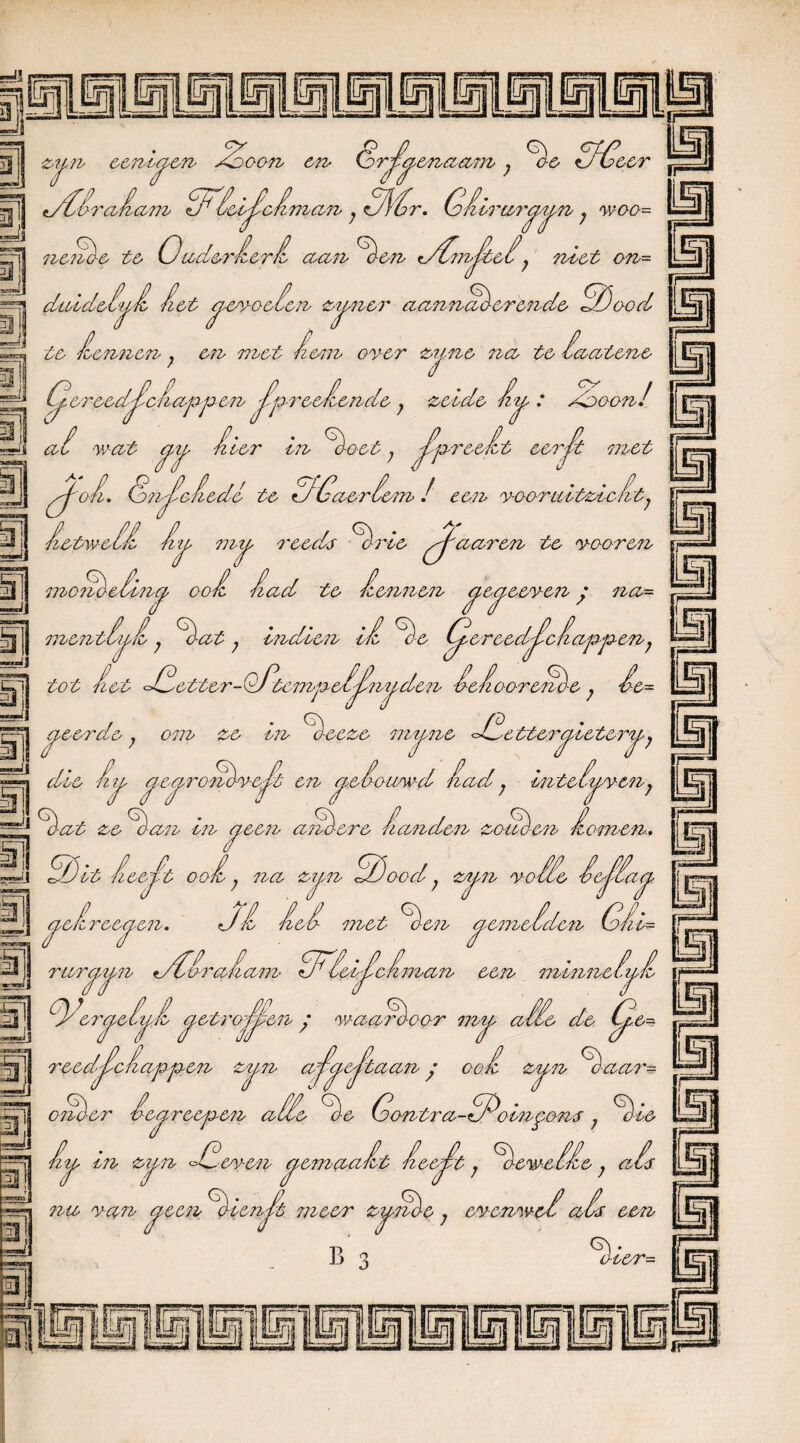 zyn eenigen Zoon en Erfgenaam, de Heer
Abraham Fleischman, Mr. Chirurgyn, woo=
nende te Ouderkerk aan den Amſtel, niet on=
duidelyk het gevoelen zyner aannaderende Dood
te kennen, en met hem over zyne na te laatene
Gereedſchappen ſpreekende, zeide hy: Zoon!
al wat gy hier in doet, ſpreekt eerſt met
Joh. Enſchedé te Haerlem! een vooruitzicht,
hetwelk hy my reeds drie Jaaren te vooren
mondeling ook had te kennen gegeeven; na=
mentlyk, dat, indien ik de Gereedſchappen,
tot het Letter-Stempelſnyden behoorende, be=
geerde, om ze in deeze myne Lettergietery,
die hy gegrondveſt en gebouwd had, intelyven,
dat ze dan in geen andere handen zouden komen.
Dit heeft ook, na zyn Dood, zyn volle beſlag
gekreegen. Ik heb met den gemelden Chi=
rurgyn Abraham Fleiſchman een minnelyk
Vergelyk getroffen; waardoor my alle de Ge=
reedſchappen zyn afgeſtaan; ook zyn daar=
onder begreepen alle de Contra-Poinçons, die
hy in zyn Leven gemaakt heeft, dewelke, als
nu van geen dienſt meer zynde, evenwel als een
B 3 dier=